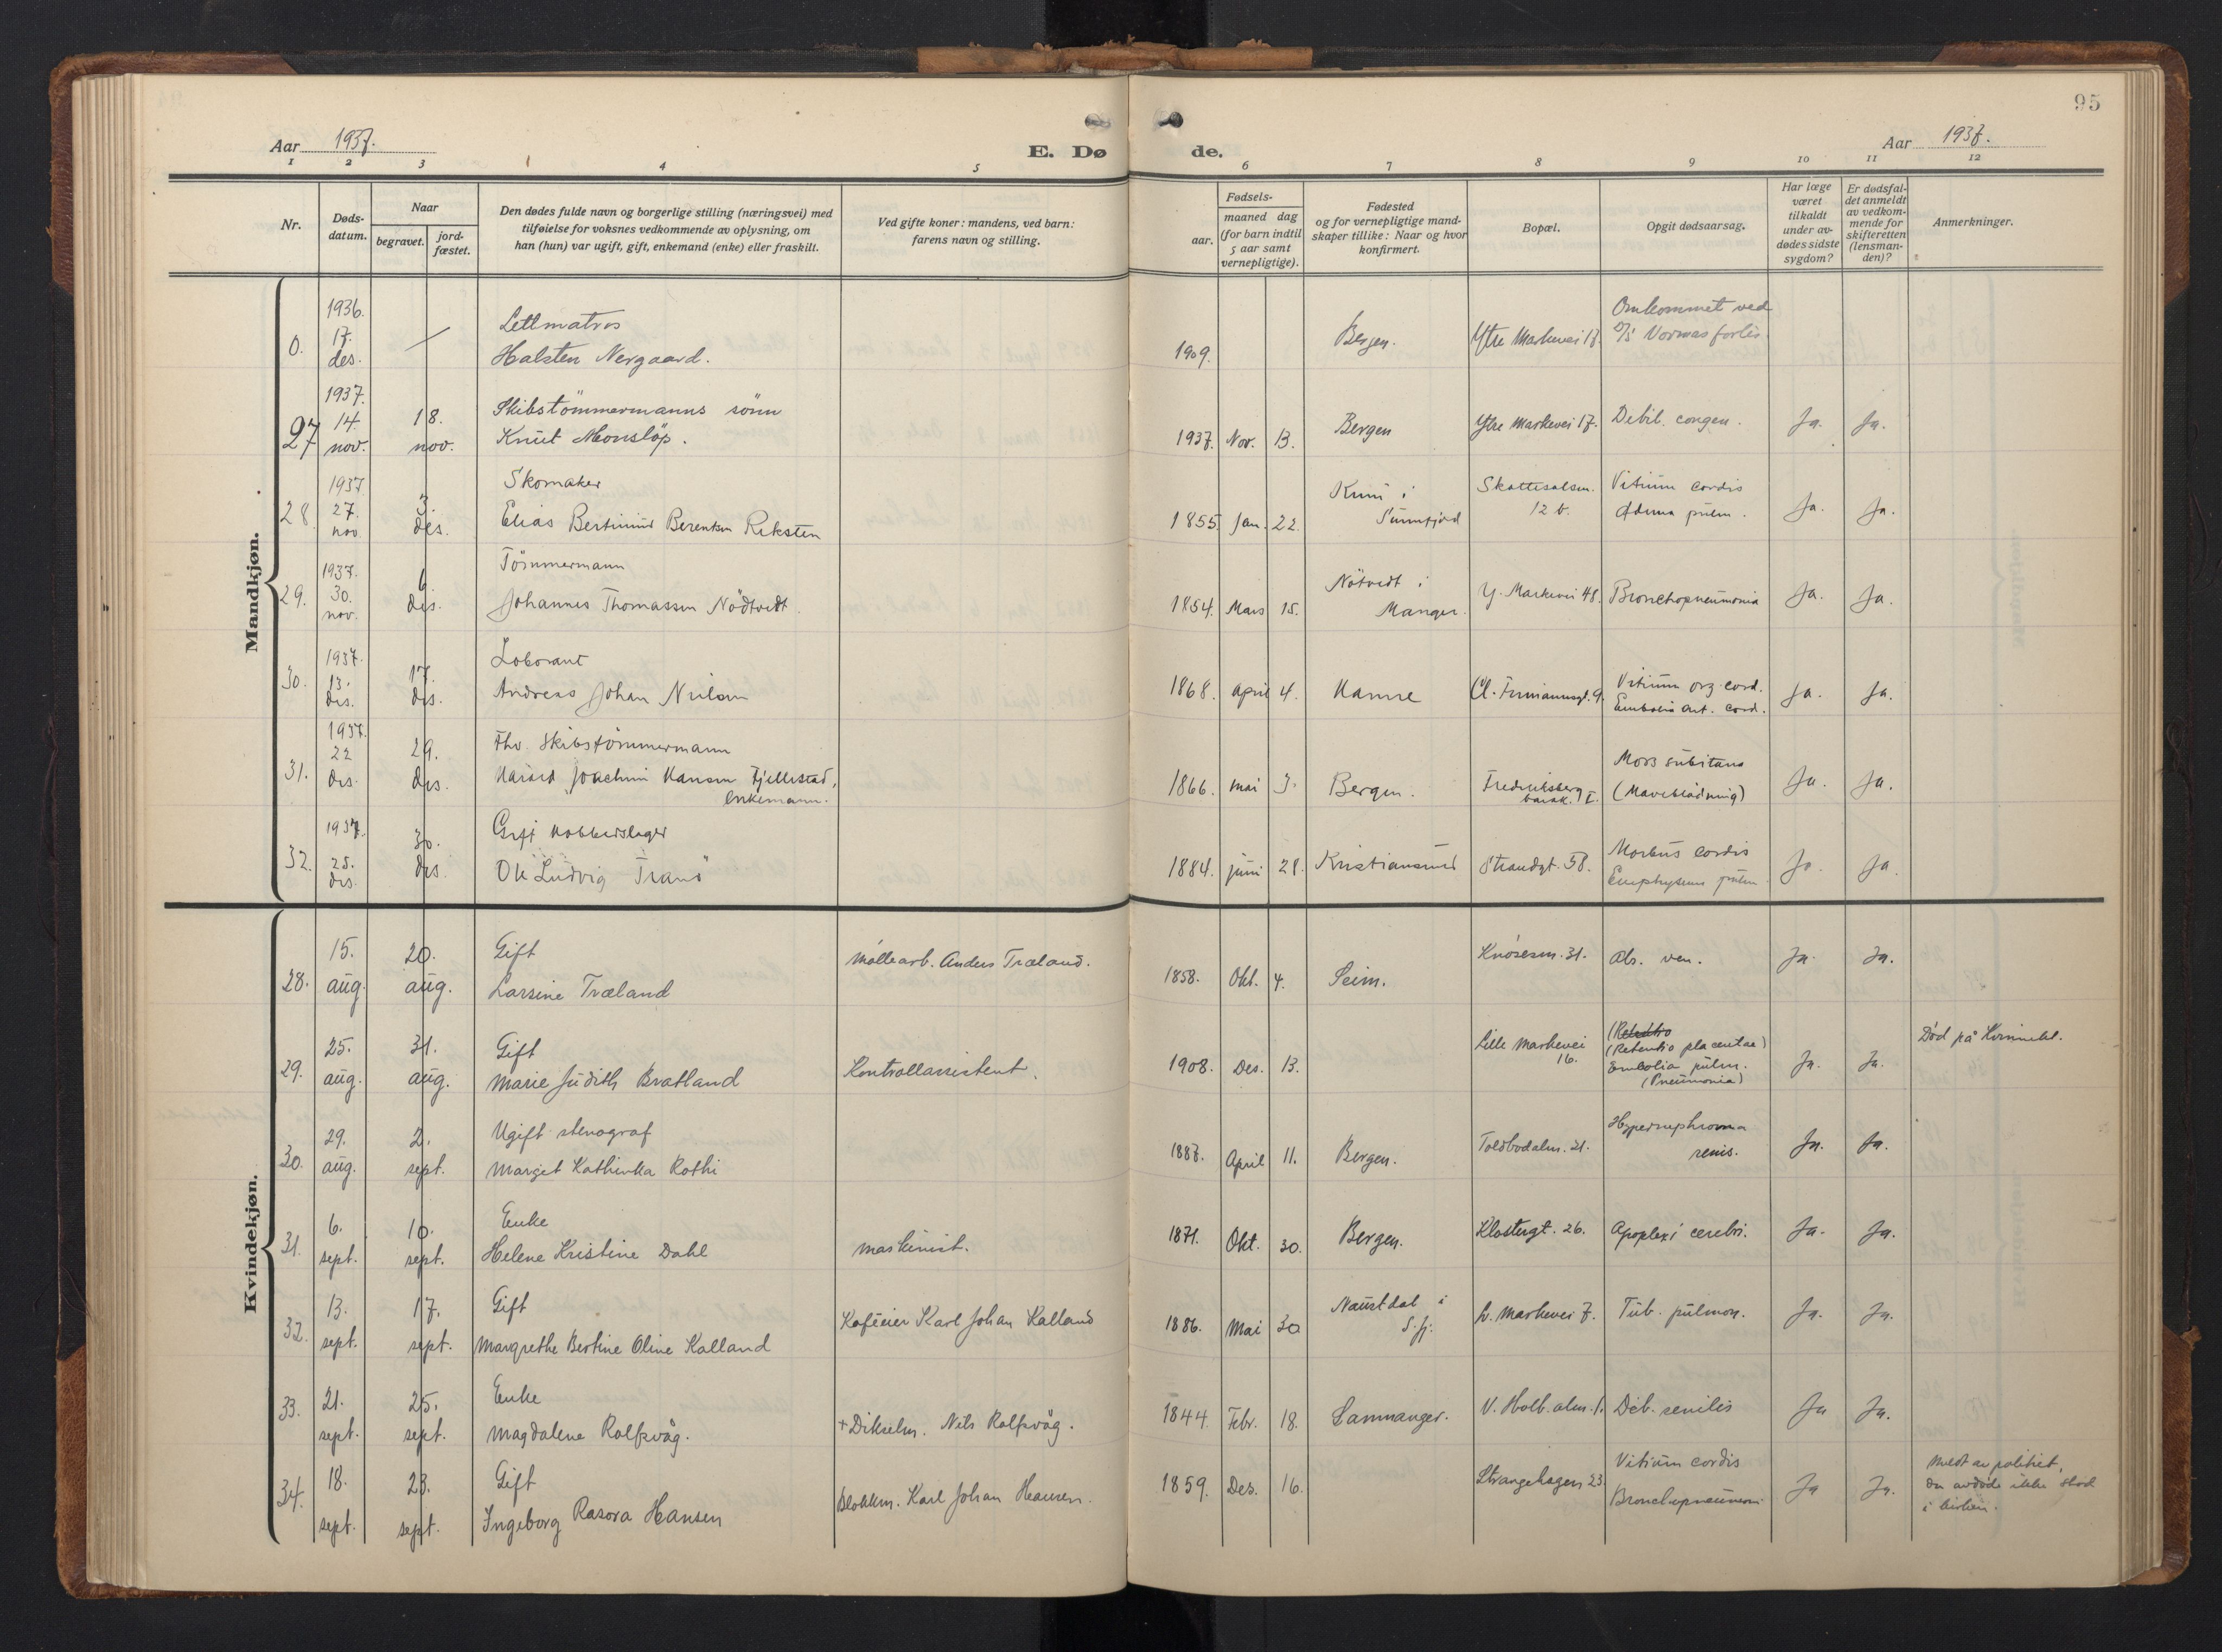 95
Aar 1937.
E. Dø de.
Aar 1937.
1 2 3 4 5 6 7 8 9 10 11 12
Nr.
Døds-
datum.
Naar
begravet.
jord-
fæstet.
Den dødes fulde navn og borgerlige stilling (næringsvei) med
tilføielse for voksnes vedkommende av oplysning, om
han (hun) var ugift, gift, enkemand (enke) eller fraskilt.
Ved gifte koner: mandens, ved barn:
farens navn og stilling.
Fødsels-
aar.
maaned dag
(for barn indtil
5 aar samt
vernepligtige).
Fødested
og for vernepligtige mand-
skaper tillike: Naar og hvor
konfirmert.
Bopæl.
Opgit dødsaarsag.
Har læge
været
tilkaldt
under av-
dødes sidste
sygdom?
Er dødsfal-
det anmeldt
av vedkom-
mende for
skifteretten
(lensman-
den)?
Anmerkninger.
Mandkjøn.
1936. Lettmatros Omkommet ved
0. 17. des. Halsten Nergaard. 1909. Bergen. Ytre Markevei 17. D/S Vormas forlis.
1937. Skibstömmermanns sönn
27 14. nov. 18. nov. Knut Monsløp. 1937. Nov. 13. Bergen Ytre Markevei 17. Debil. congen. Ja. Ja.
1937 Skomaker Kinn i Skottesalsm. Vitium cordis
28. 27. nov 3. des. Elias Bertinius Berentsen Reksten 1855 Jan. 22. Sunnfjord 12 b. Ødema pulm. Ja. Ja.
1937. Tömmermann Nötvedt i
29. 30. nov. 6 des. Johannes Thomassen Nödtvedt. 1854. Mars 15. Manger. Y. Markevei 48. Bronchopneumonia Ja. Ja.
1937. Laborant Vitium org. cord.
30. 13. des. 17. des. Andreas Johan Nilsen 1868. april 4. Hamre 9. Embolia art. cord. Ja. Ja.
1937. Fhv. Skibstömmermann Mors subitana
31. 22 des. 29. des. Harald Joachim Hansen Fjellestad, 1866. mai 3. Bergen. Fredriksberg (Maveblödning) Ja. Ja.
enkemann. I.
1937. Gift kobberslager Morbus cordis
32. 25. des. 30. des Ole Ludvig Tranö 1884. juni 28. Kristiansund Strandgt. 58. Emphysem pulm. Ja. Ja.
Kvindekjøn.
15. 20. Gift Møllearb. Anders Træland. Knösesm. 31. Als. ven.
28. aug. aug. Larsine Træland 1858. Okt. 4. Seim. Ja. Ja.
25. 31. Gift Lille Markevei (Retentio Død på Kvinnekl.
16. (Retentio placentae)
29. aug. aug. Marie Judith Bratland Kontrollassistent. 1908. Des. 13. Embolia pulm. Ja. Ja.
(Pneumonia)
29. 2. Ugift stenograf Hypernephroma
30. aug. sept. Marget Kathinka Rothi 1887. April 11. Bergen. Toldbodalm. 21. renis. Ja. Ja.
6. 10. Enke
31. sept. sept. Helene Kristine Dahl maskinist. 1871. Okt. 30. Bergen. Klostergt. 26. Apoplexi cerebri. Ja. Ja.
13. 17. Gift Kaféeier Karl Johan Kalland Naustdal i
32. sept. sept. Margrethe Bertine Oline Kalland 1886. Mai 30 S.fj. L. Markevei 7. Tub. pulmon. Ja. Ja.
21. 25. Enke
33. sept. sept. Magdalene Rolfsvåg. + Dikselm. Nils Rolfsvåg. 1844. Febr. 18. Samnanger. V. Holb. alm. 1. Deb. senilis Ja Ja.
18. 23. Gift Vitium cordis Meldt av politiet,
34. sept. sept. Ingeborg Rasora Hansen Blokkm. Karl Johan Hansen. 1859. Des. 16. Strangehagen 23. Bronchopneumoni Ja Ja. da avdöde ikke stod
i kirken.